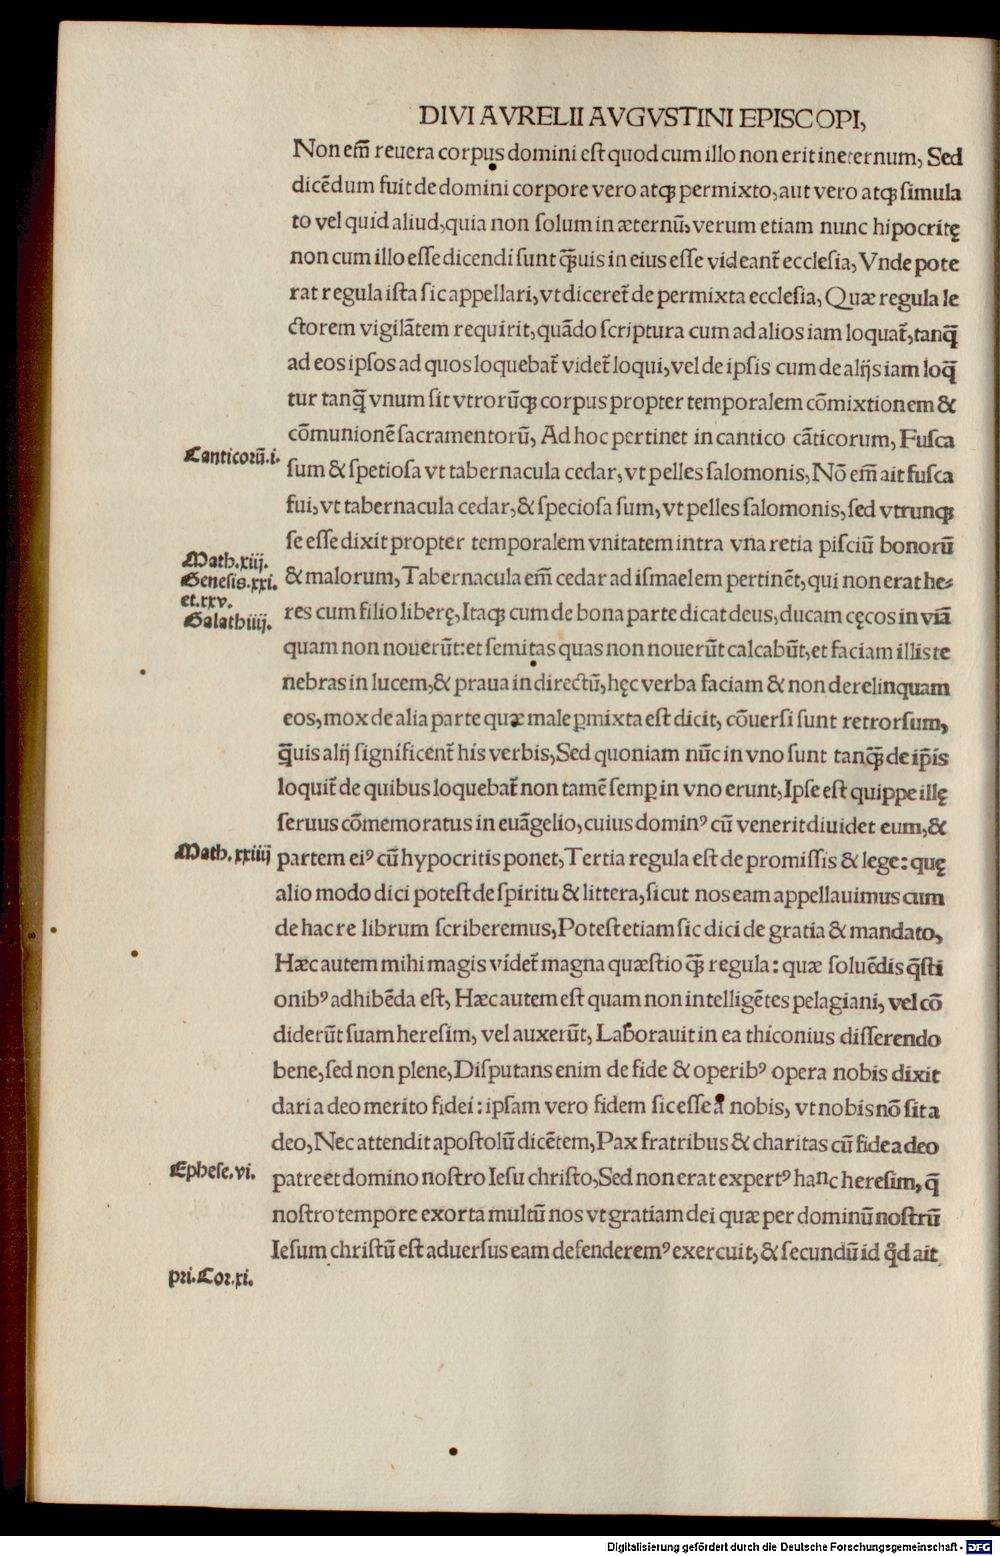 DIVI AVRELII AVGVSTINI EPISCOPI,
Non em̃ reuera corpus domini est quod cum illo non erit ineternum, Sed
dicēdum fuit de domini corpore vero atq; permixto, aut vero atq; simula
to vel quid aliud, quia non solum in æternũ, verum etiam nunc hipocritę
non cum illo esse dicendi sunt q̃uis in eius esse videant̃ ecclesia, Vnde pote
rat regula ista sic appellari, vt diceret̃ de permixta ecclesia, Quæ regula le
ctorem vigilãtem requirit, quãdo scriptura cum ad alios iam loquat̃, tanq̃
ad eos ipsos ad quos loquebat̃ videt̃ loqui, vel de ipsis cum de alijs iam loq̃
tur tanq̃ vnum sit vtrorũq; corpus propter temporalem cõmixtionem &
cõmunionē sacramentorũ, Ad hoc pertinet in cantico cãticorum, Fusca
Canticorũ.i.
sum & spetiosa vt tabernacula cedar, vt pelles salomonis, Nõ em̃ ait fusca
fui, vt tabernacula cedar, & speciosa sum, vt pelles salomonis, sed vtrunq;
se esse dixit propter temporalem vnitatem intra vna retia pisciũ bonorũ
Math.xiij.
Genesis.xxi.
et.xxv.
Galathiiij.
& malorum, Tabernacula em̃ cedar ad ismaelem pertinēt, qui non erat he-
res cum filio liberę, Itaq; cum de bona parte dicat deus, ducam cęcos in viã
quam non nouerũt: et semitas quas non nouerũt calcabũt, et faciam illis te
nebras in lucem, & praua in directũ, hęc verba faciam & non derelinquam
eos, mox de alia parte quæ male ꝑmixta est dicit, cõuersi sunt retrorsum,
q̃uis alij significent̃ his verbis, Sed quoniam nũc in vno sunt tanq̃ de ip̃is
loquit̃ de quibus loquebat̃ non tamē semꝑ in vno erunt, Ipse est quippe illę
seruus cõmemoratus in euãgelio, cuius dominꝰ cũ venerit diuidet eum, &
Math.xxiiij
partem eiꝰ cũ hypocritis ponet, Tertia regula est de promissis & lege: quę
alio modo dici potest de spiritu & littera, sicut nos eam appellauimus cum
de hac re librum scriberemus, Potest etiam sic dici de gratia & mandato,
Hæc autem mihi magis videt̃ magna quæstio q̃ regula: quæ soluēdis q̃sti
onibꝰ adhibēda est, Hæc autem est quam non intelligētes pelagiani, vel cõ
diderũt suam heresim, vel auxerũt, Laborauit in ea thiconius disserendo
bene, sed non plene, Disputans enim de fide & operibꝰ opera nobis dixit
dari a deo merito fidei: ipsam vero fidem sic esse a nobis, vt nobis nõ sit a
deo, Nec attendit apostolũ dicētem, Pax fratribus & charitas cũ fide a deo
Ephese.vi.
patre et domino nostro Iesu christo, Sed non erat expertꝰ hanc heresim, q̃
nostro tempore exorta multũ nos vt gratiam dei quæ per dominũ nostrũ
Iesum christũ est aduersus eam defenderemꝰ exercuit, & secundũ id q̃d ait
pri.Cor.xi.
Digitalisierung gefördert durch die Deutsche Forschungsgemeinschaft - DFG